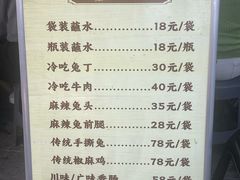 袋装蘸水………………18元/袋
瓶装蘸水………………18元/瓶
冷吃兔丁………………30元/袋
冷吃牛肉………………40元/袋
麻辣兔头………………35元/袋
麻辣兔前腿……………28元/袋
传统手撕兔……………78元/袋
传统椒麻鸡……………78元/袋
川味/广味香肠………58元/袋